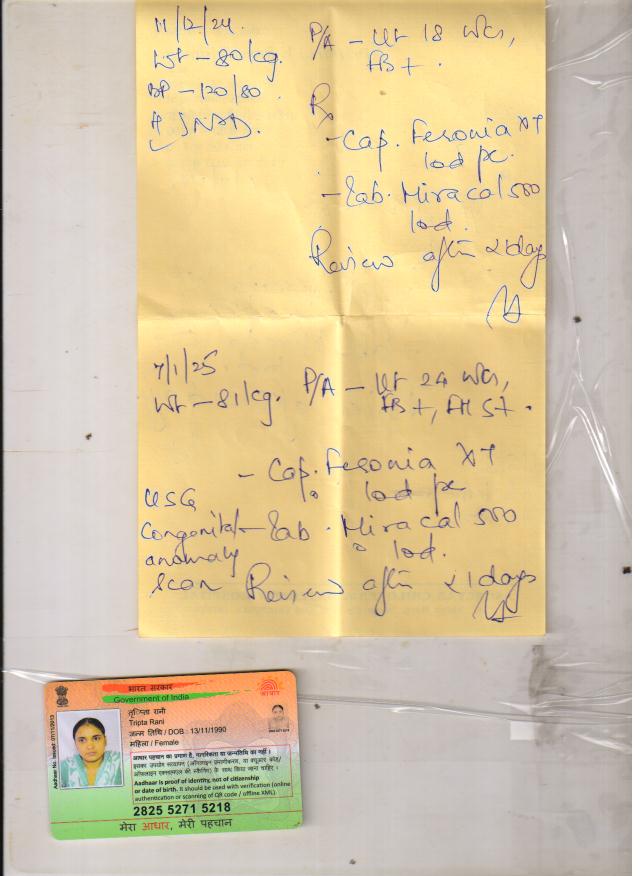 11/12/24.
Wt - 80kg.
BP - 120/80
P/A - Ut 18 wks,
FB + .
Rx
- Cap. Fesonia XT
1od pc.
- Tab. Miracal 500
1od.
Review after 21 days
7/1/25
Wt - 81kg.
P/A - Ut 24 wks,
FB +, FHS + .
- Cap. Fesonia XT
1od pc
USG
Congenital
anomaly
scan
- Tab. Miracal 500
1od.
Review after 21 days
भारत सरकार
Government of India
Aadhaar No. issued: 01/11/2013
तृप्ता रानी
Tripta Rani
जन्म तिथि / DOB : 13/11/1990
महिला / Female
आधार पहचान का प्रमाण है, नागरिकता या जन्मतिथि का नहीं।
Aadhaar is proof of identity, not of citizenship
or date of birth. It should be used with verification (online
authentication or scanning of QR code / offline XML).
2825 5271 5218
मेरा आधार, मेरी पहचान